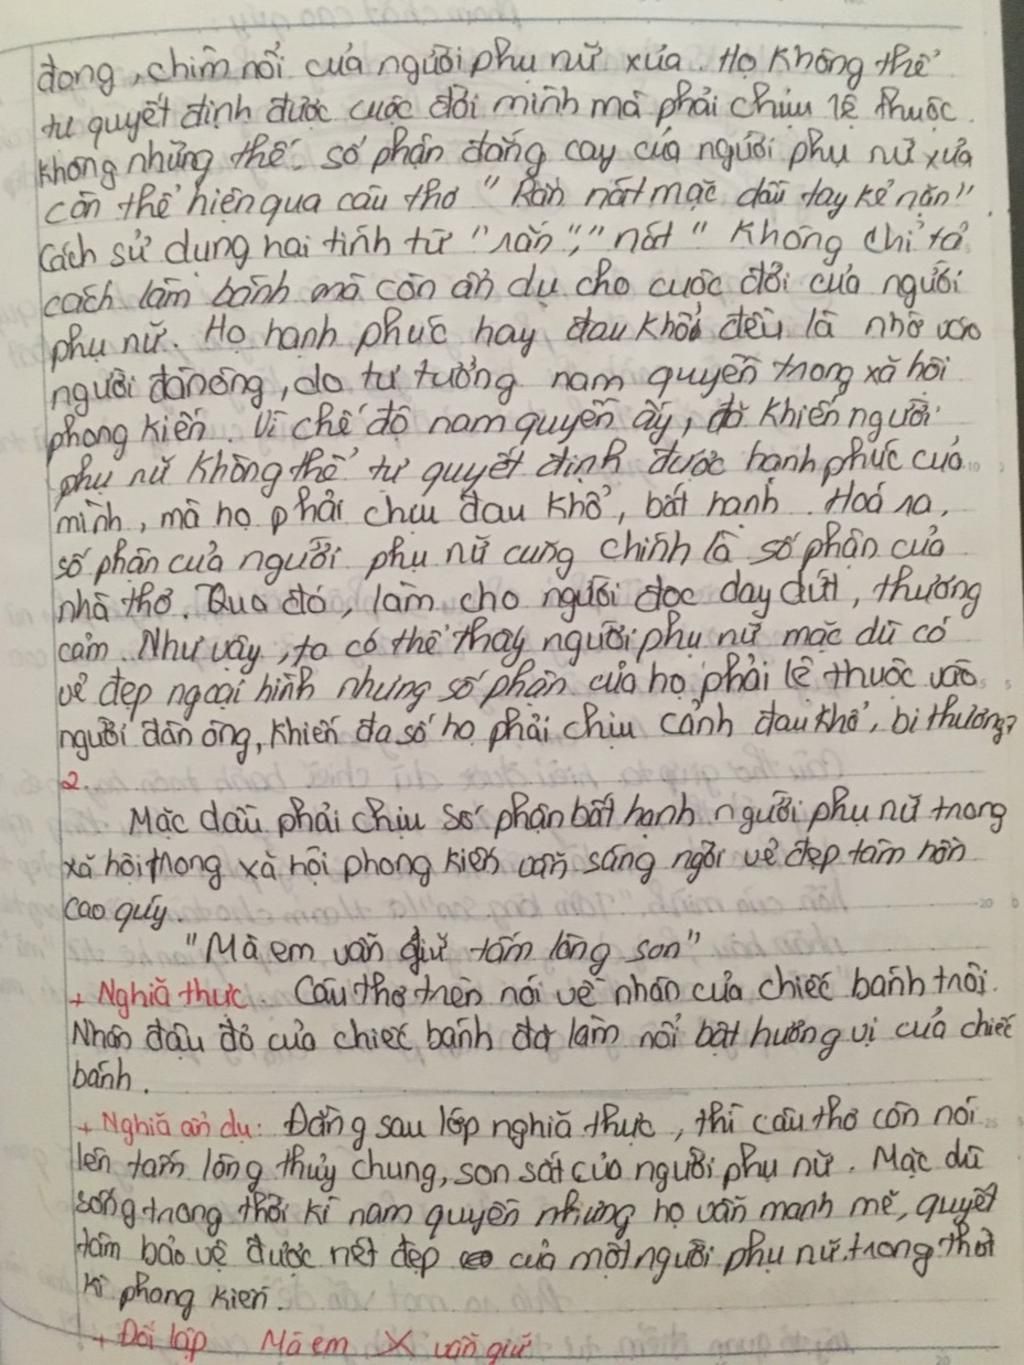 đong, chìm nổi của người phụ nữ xưa. Họ không thể
tự quyết định được cuộc đời mình mà phải chịu lệ thuộc.
Không những thế, số phận đắng cay của người phụ nữ xưa
còn thể hiện qua câu thơ "Rắn nát mặc dầu tay kẻ nặn".
Cách sử dụng hai tính từ "rắn", "nát" không chỉ tả
cách làm bánh mà còn ẩn dụ cho cuộc đời của người
phụ nữ. Họ hạnh phúc hay đau khổ đều là nhờ vào
người đàn ông, do tư tưởng nam quyền trong xã hội
phong kiến. Vì chế độ nam quyền ấy, đã khiến người
phụ nữ không thể tự quyết định được hạnh phúc của
mình, mà họ phải chịu đau khổ, bất hạnh. Hoá ra,
số phận của người phụ nữ cũng chính là số phận của
nhà thơ. Qua đó, làm cho người đọc day dứt, thương
cảm. Như vậy, ta có thể thấy người phụ nữ mặc dù có
vẻ đẹp ngoại hình nhưng số phận của họ phải lệ thuộc vào
người đàn ông, khiến đa số họ phải chịu cảnh đau khổ, bi thương?
2.
Mặc dầu phải chịu số phận bất hạnh người phụ nữ trong
xã hội trong xã hội phong kiến vẫn sáng ngời vẻ đẹp tâm hồn
cao quý.
"Mà em vẫn giữ tấm lòng son"
+ Nghĩa thực. Câu thơ trên nói về nhân của chiếc bánh trôi.
Nhân đậu đỏ của chiếc bánh đã làm nổi bật hương vị của chiếc
bánh.
+ Nghĩa ẩn dụ: Đằng sau lớp nghĩa thực, thì câu thơ còn nói
lên tấm lòng thủy chung, son sắt của người phụ nữ. Mặc dù
sống trong thời kì nam quyền nhưng họ vẫn mạnh mẽ, quyết
tâm bảo vệ được nét đẹp của một người phụ nữ trong thời
kì phong kiến.
+ Đối lập Mà em X vẫn giữ